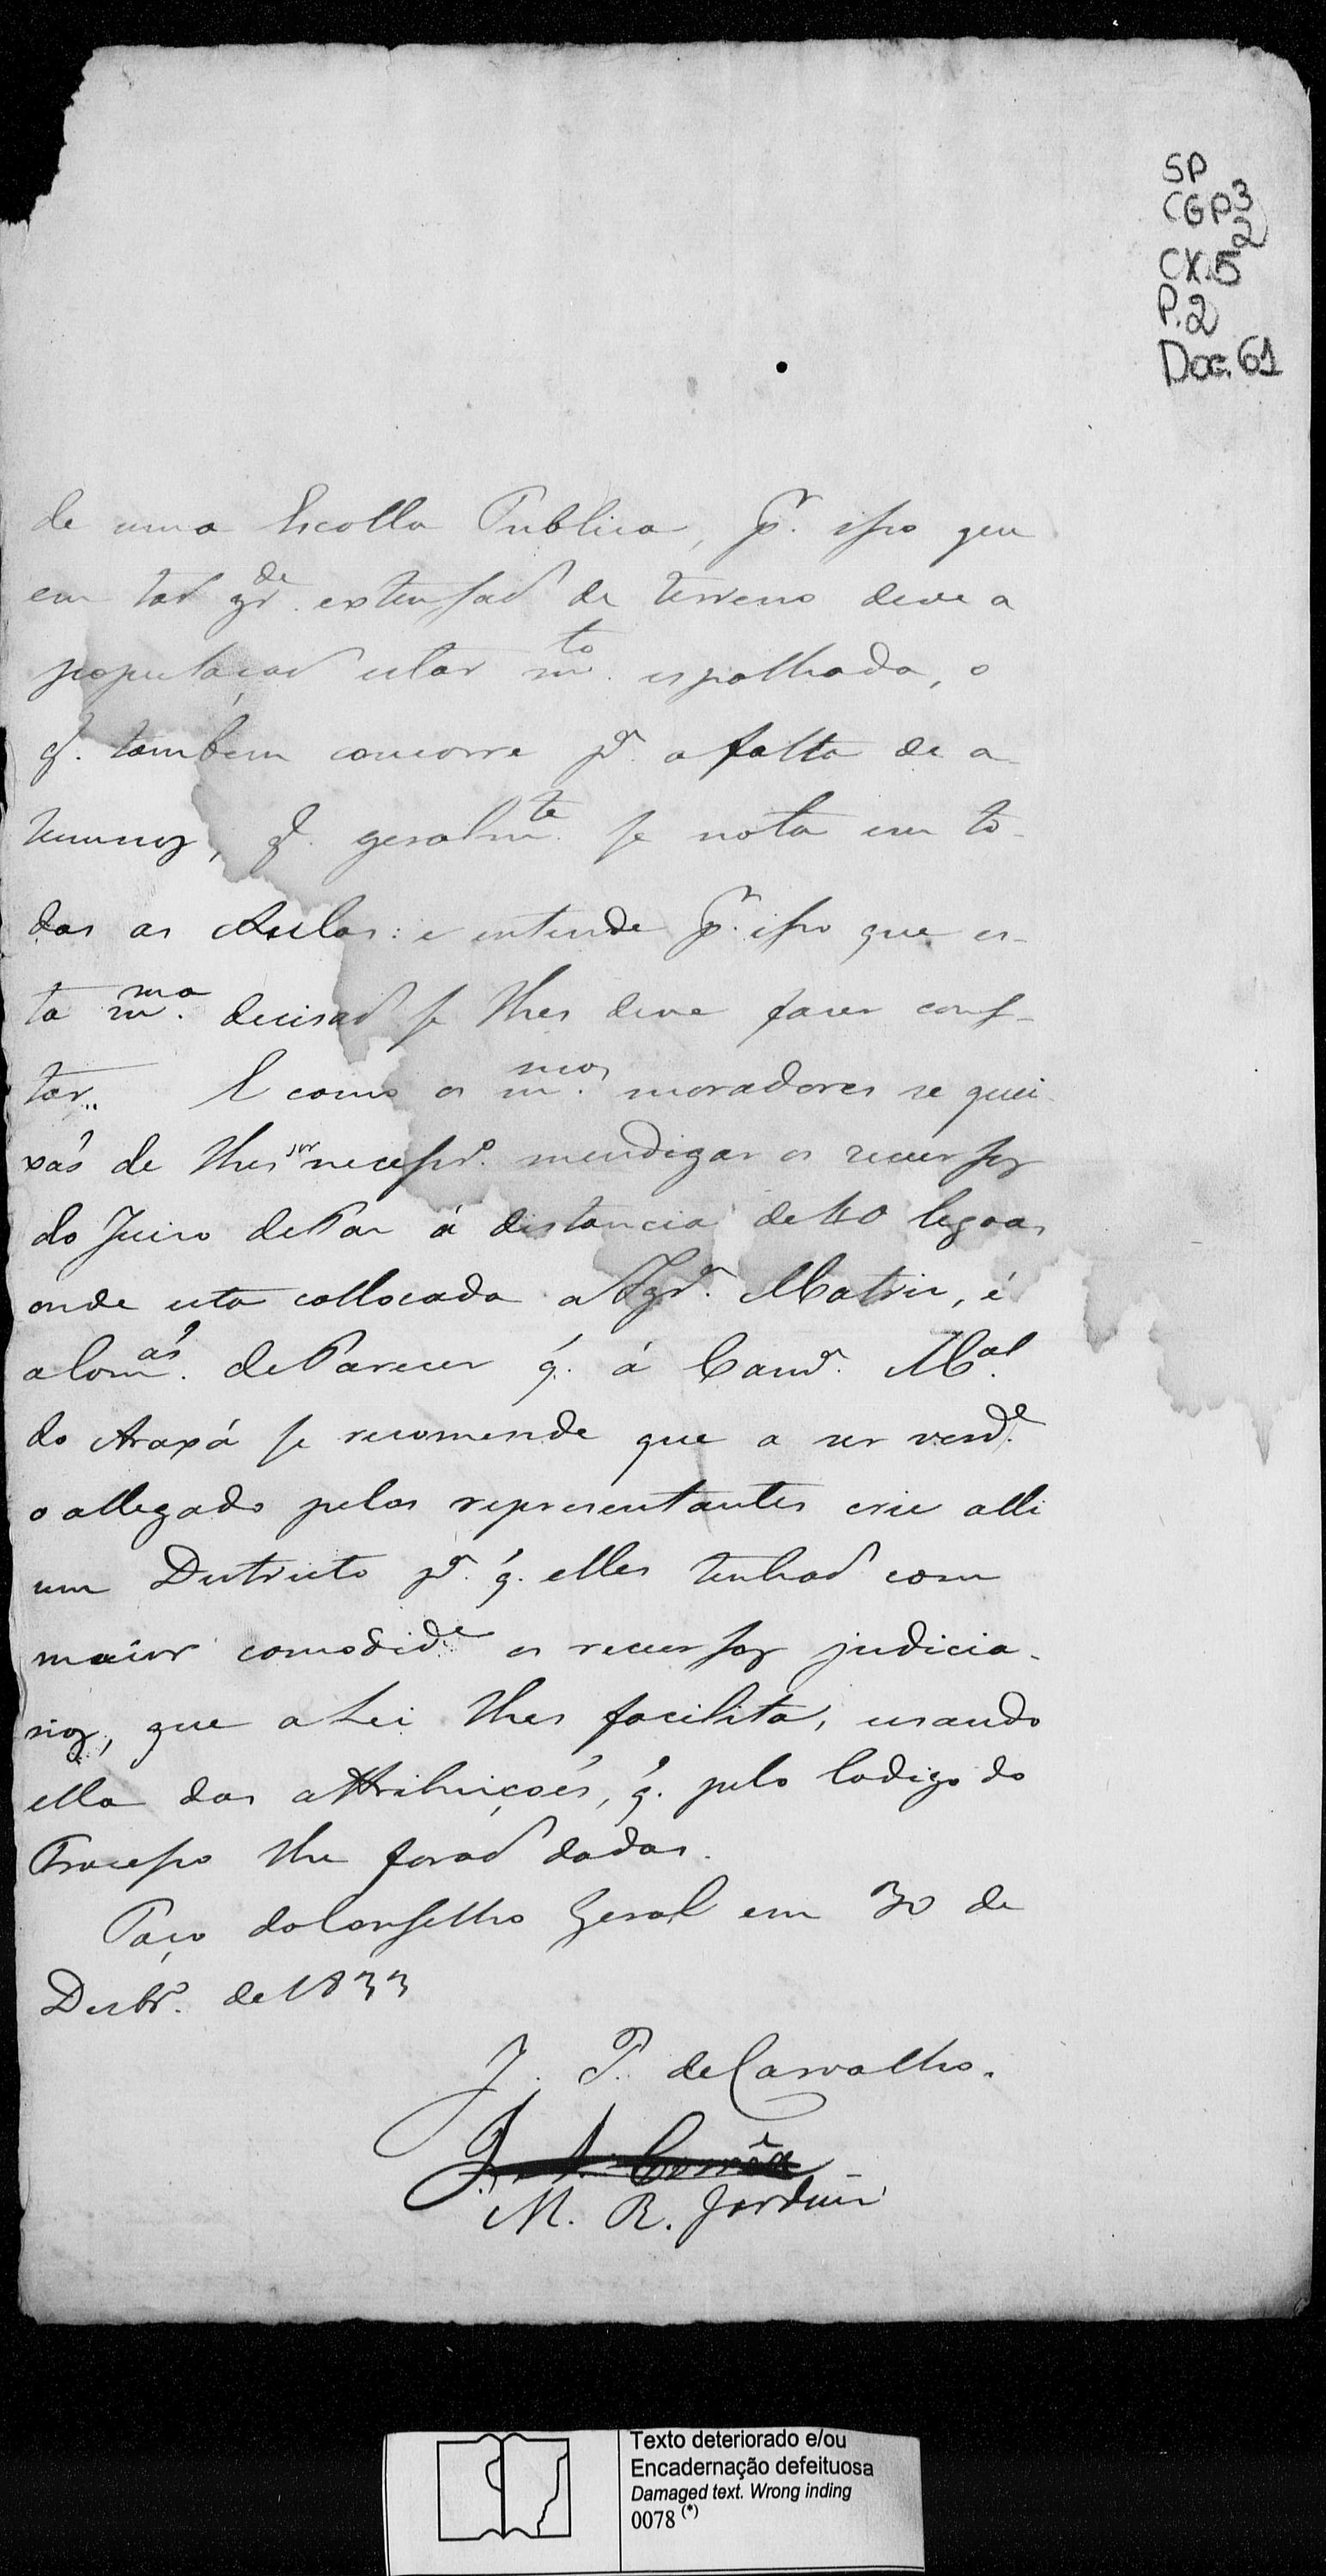 SP
CGP3
2
CX.5
P.2
Doc. 61
de uma Escolla Publica, pr. isso que
em taõ gr.de extensaõ de terreno deve a
populaçaõ estar m.to espalhada, o
q. tambem concorre pa. a falta de a-
lumnos, q. geralm.te se nota em to-
das as Aulas: e entende pr. isso que es-
ta m.ma decisaõ se lhes deve fazer cons-
tar. E como os m.mos moradores se quei-
xaõ de lhes ser necessro. mendigar os recursos
do Juizo de Paz á distancia de 40 legoas
onde esta collocada a Igra. Matriz, é
a Com.aõ de Parecer q. á Camra. M.al
do Araxá se recomende que a ser verd.e
o allegado pelos representantes crie alli
um Destricto pa. q. elles tenhaõ com
maior comodid.e os recursos judicia-
rios, que a Lei lhes facilita, usando
ella das attribuiçoẽs, q. pelo Codigo do
Processo lhe foraõ dadas.
Paço do Conselho Geral em 30 de
Dezbro. de 1833
J. P. de Carvalho.
J. A. Corrêa
M. R. Jardim
Texto deteriorado e/ou
Encadernação defeituosa
Damaged text. Wrong inding
0078 (*)